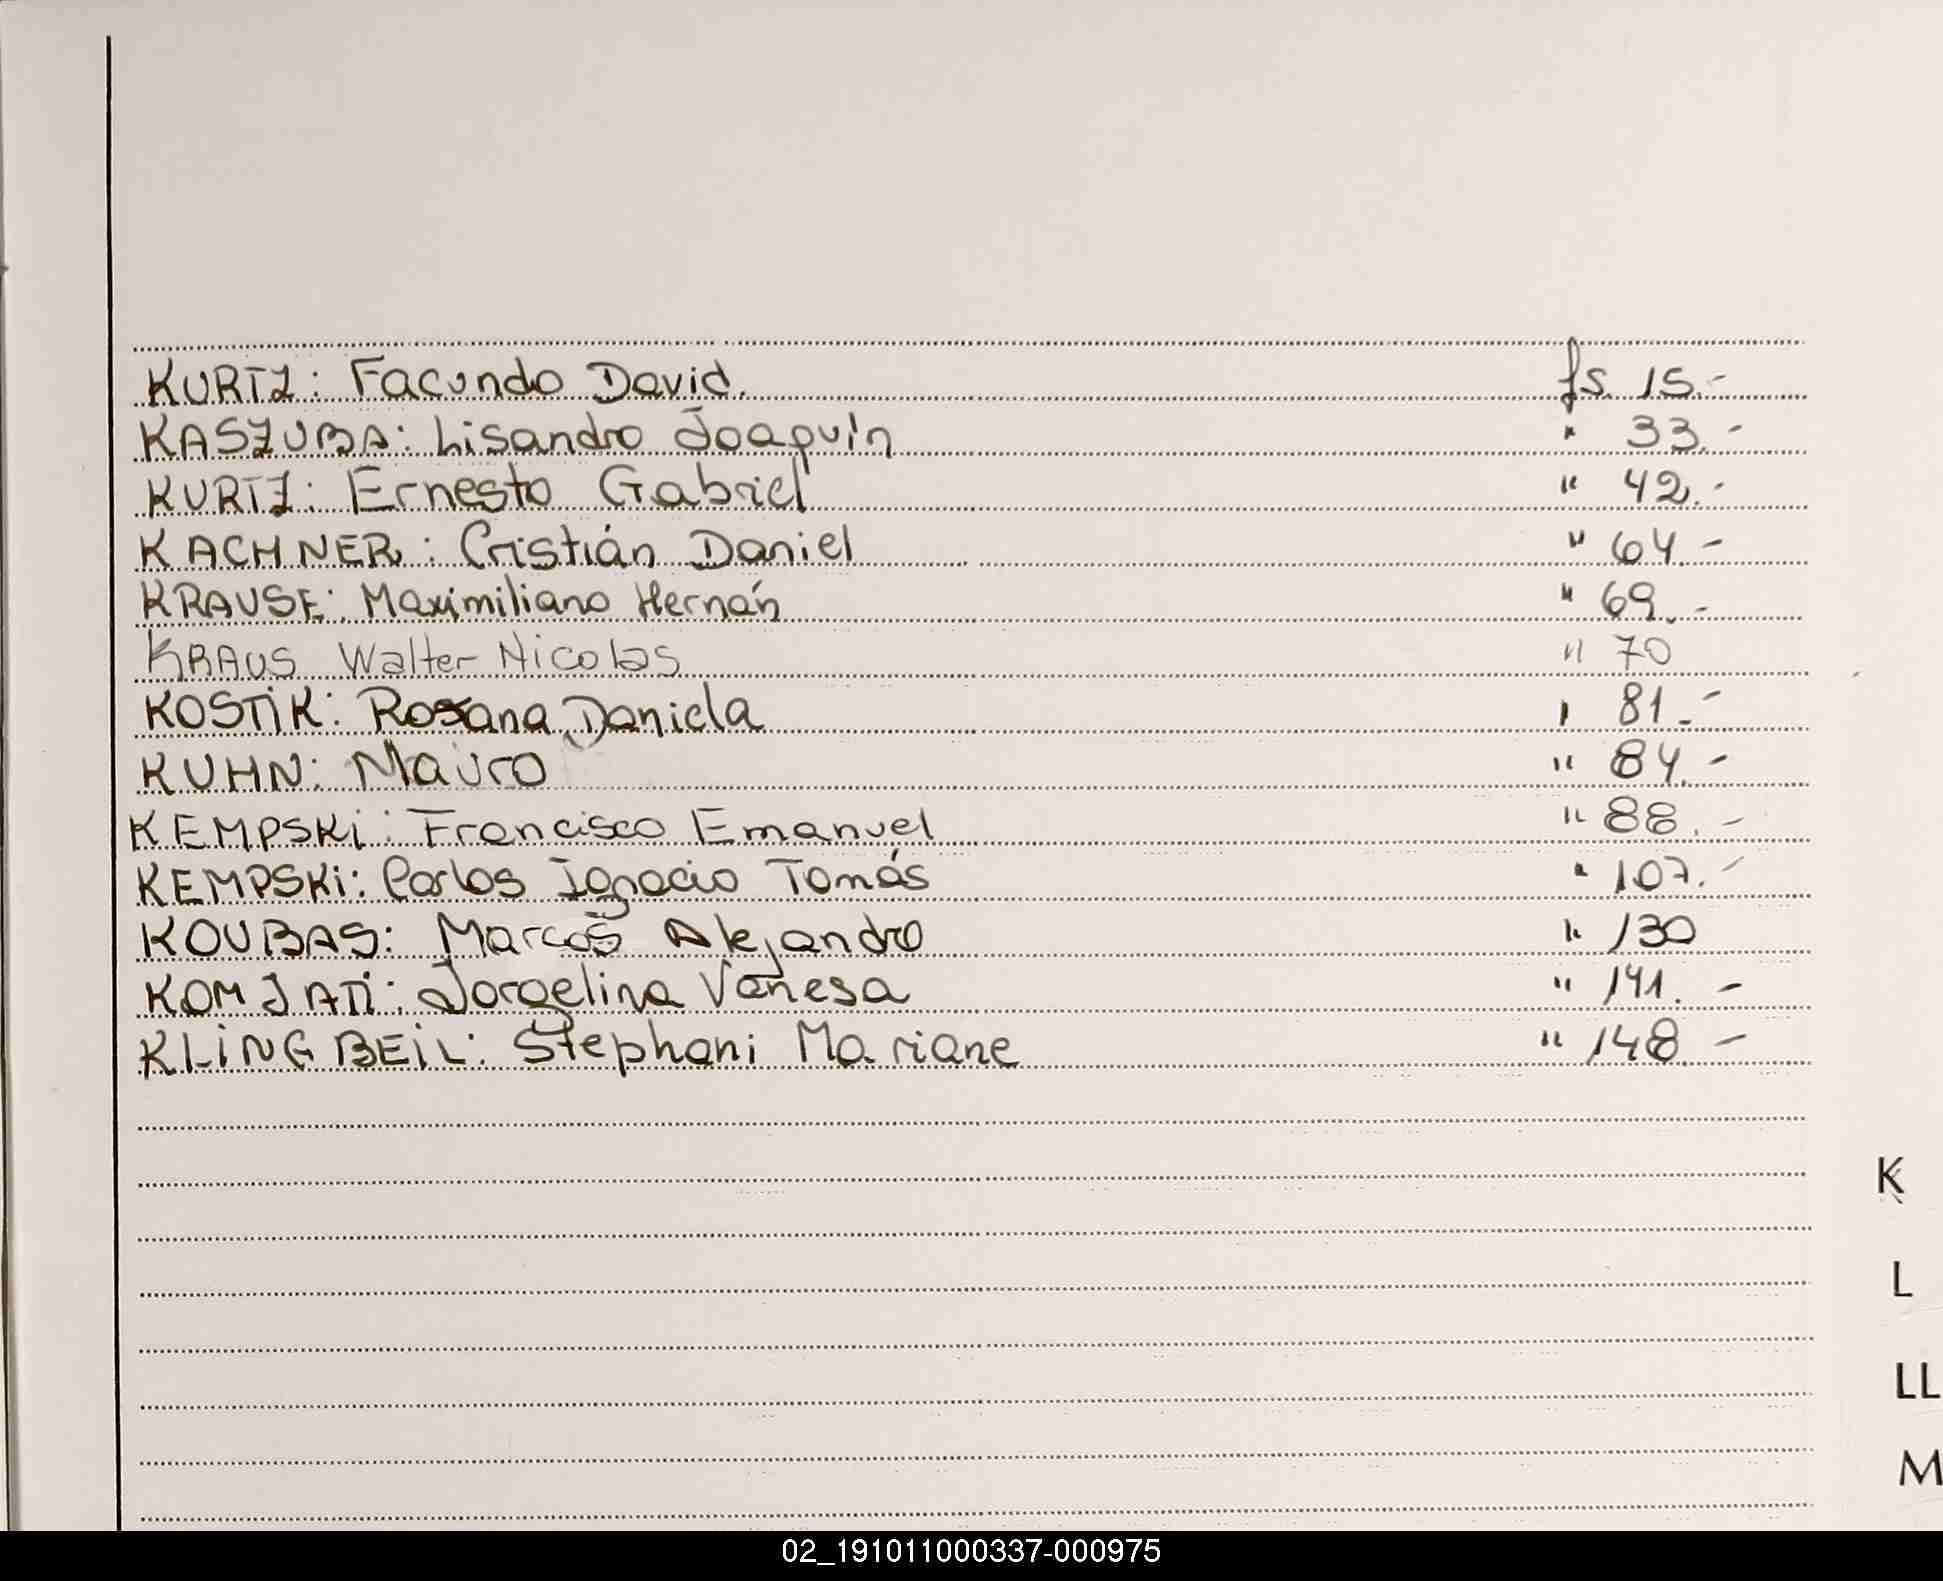 KURTZ: Facundo David. fs. 15.-
KASZUBA: Lisandro Joaquín " 33.-
KURTZ: Ernesto Gabriel " 42.-
KACHNER: Cristián Daniel " 64.-
KRAUSE: Maximiliano Hernán " 69.-
KRAUS Walter Nicolas " 70
KOSTiK: Roxana Daniela " 81.-
KUHN: Mauro " 84.-
KEMPSKi: Francisco Emanuel " 88.-
KEMPSKi: Carlos Ignacio Tomás " 107.-
KOUBAS: Marcos Alejandro " 130
KOMJATi: Jorgelina Vanesa " 141.-
KLiNGBEiL: Stephani Mariane " 148-
K
L
LL
M
02_191011000337-000975